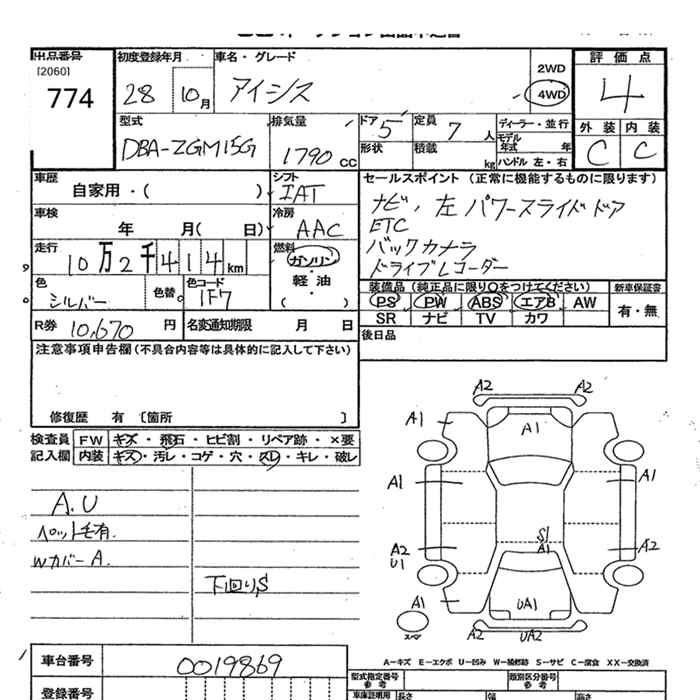 出品番号
[2060]
774
初度登録年月
28 10月
車名・グレード
アイシス
2WD
4WD
評価点
4
外装 内装
C C
型式
DBA-ZGM15G
排気量
1790 cc
ドア 5
定員 7 人
形状
積載 kg
ディーラー・並行
モデル年式 年
ハンドル 左・右
車歴
自家用・( )
シフト
IAT
車検
年 月( 日)
冷房
AAC
走行
10万2千414km
燃料
ガソリン
軽油
( )
色
シルバー
色替
色コード
1F7
R券 10,670 円
名変通知期限 月 日
セールスポイント(正常に機能するものに限ります)
ナビ、左パワースライドドア
ETC
バックカメラ
ドライブレコーダー
装備品(純正品に限り○をつけてください)
新車保証書
PS PW ABS エアB AW
SR ナビ TV カワ
有・無
後日品
注意事項申告欄(不具合内容等は具体的に記入して下さい)
修復歴 有 〔箇所 〕
検査員記入欄
FW キズ・飛石・ヒビ割・リペア跡・×要
内装 キズ・汚レ・コゲ・穴・スレ・キレ・破レ
A.U
ペット毛有.
Wカバー A.
下回りS
A2 A2
A1
A1
A1 A1
S1
A1
A2
U1
A2
A1
UA1
スペア
A2 UA2
A-キズ E-エクボ U-凹み W-補修跡 S-サビ C-腐食 XX-交換済
車台番号
0019869
登録番号
型式指定番号
参考
類別区分番号
参考
車庫証明用
長さ
幅
高さ